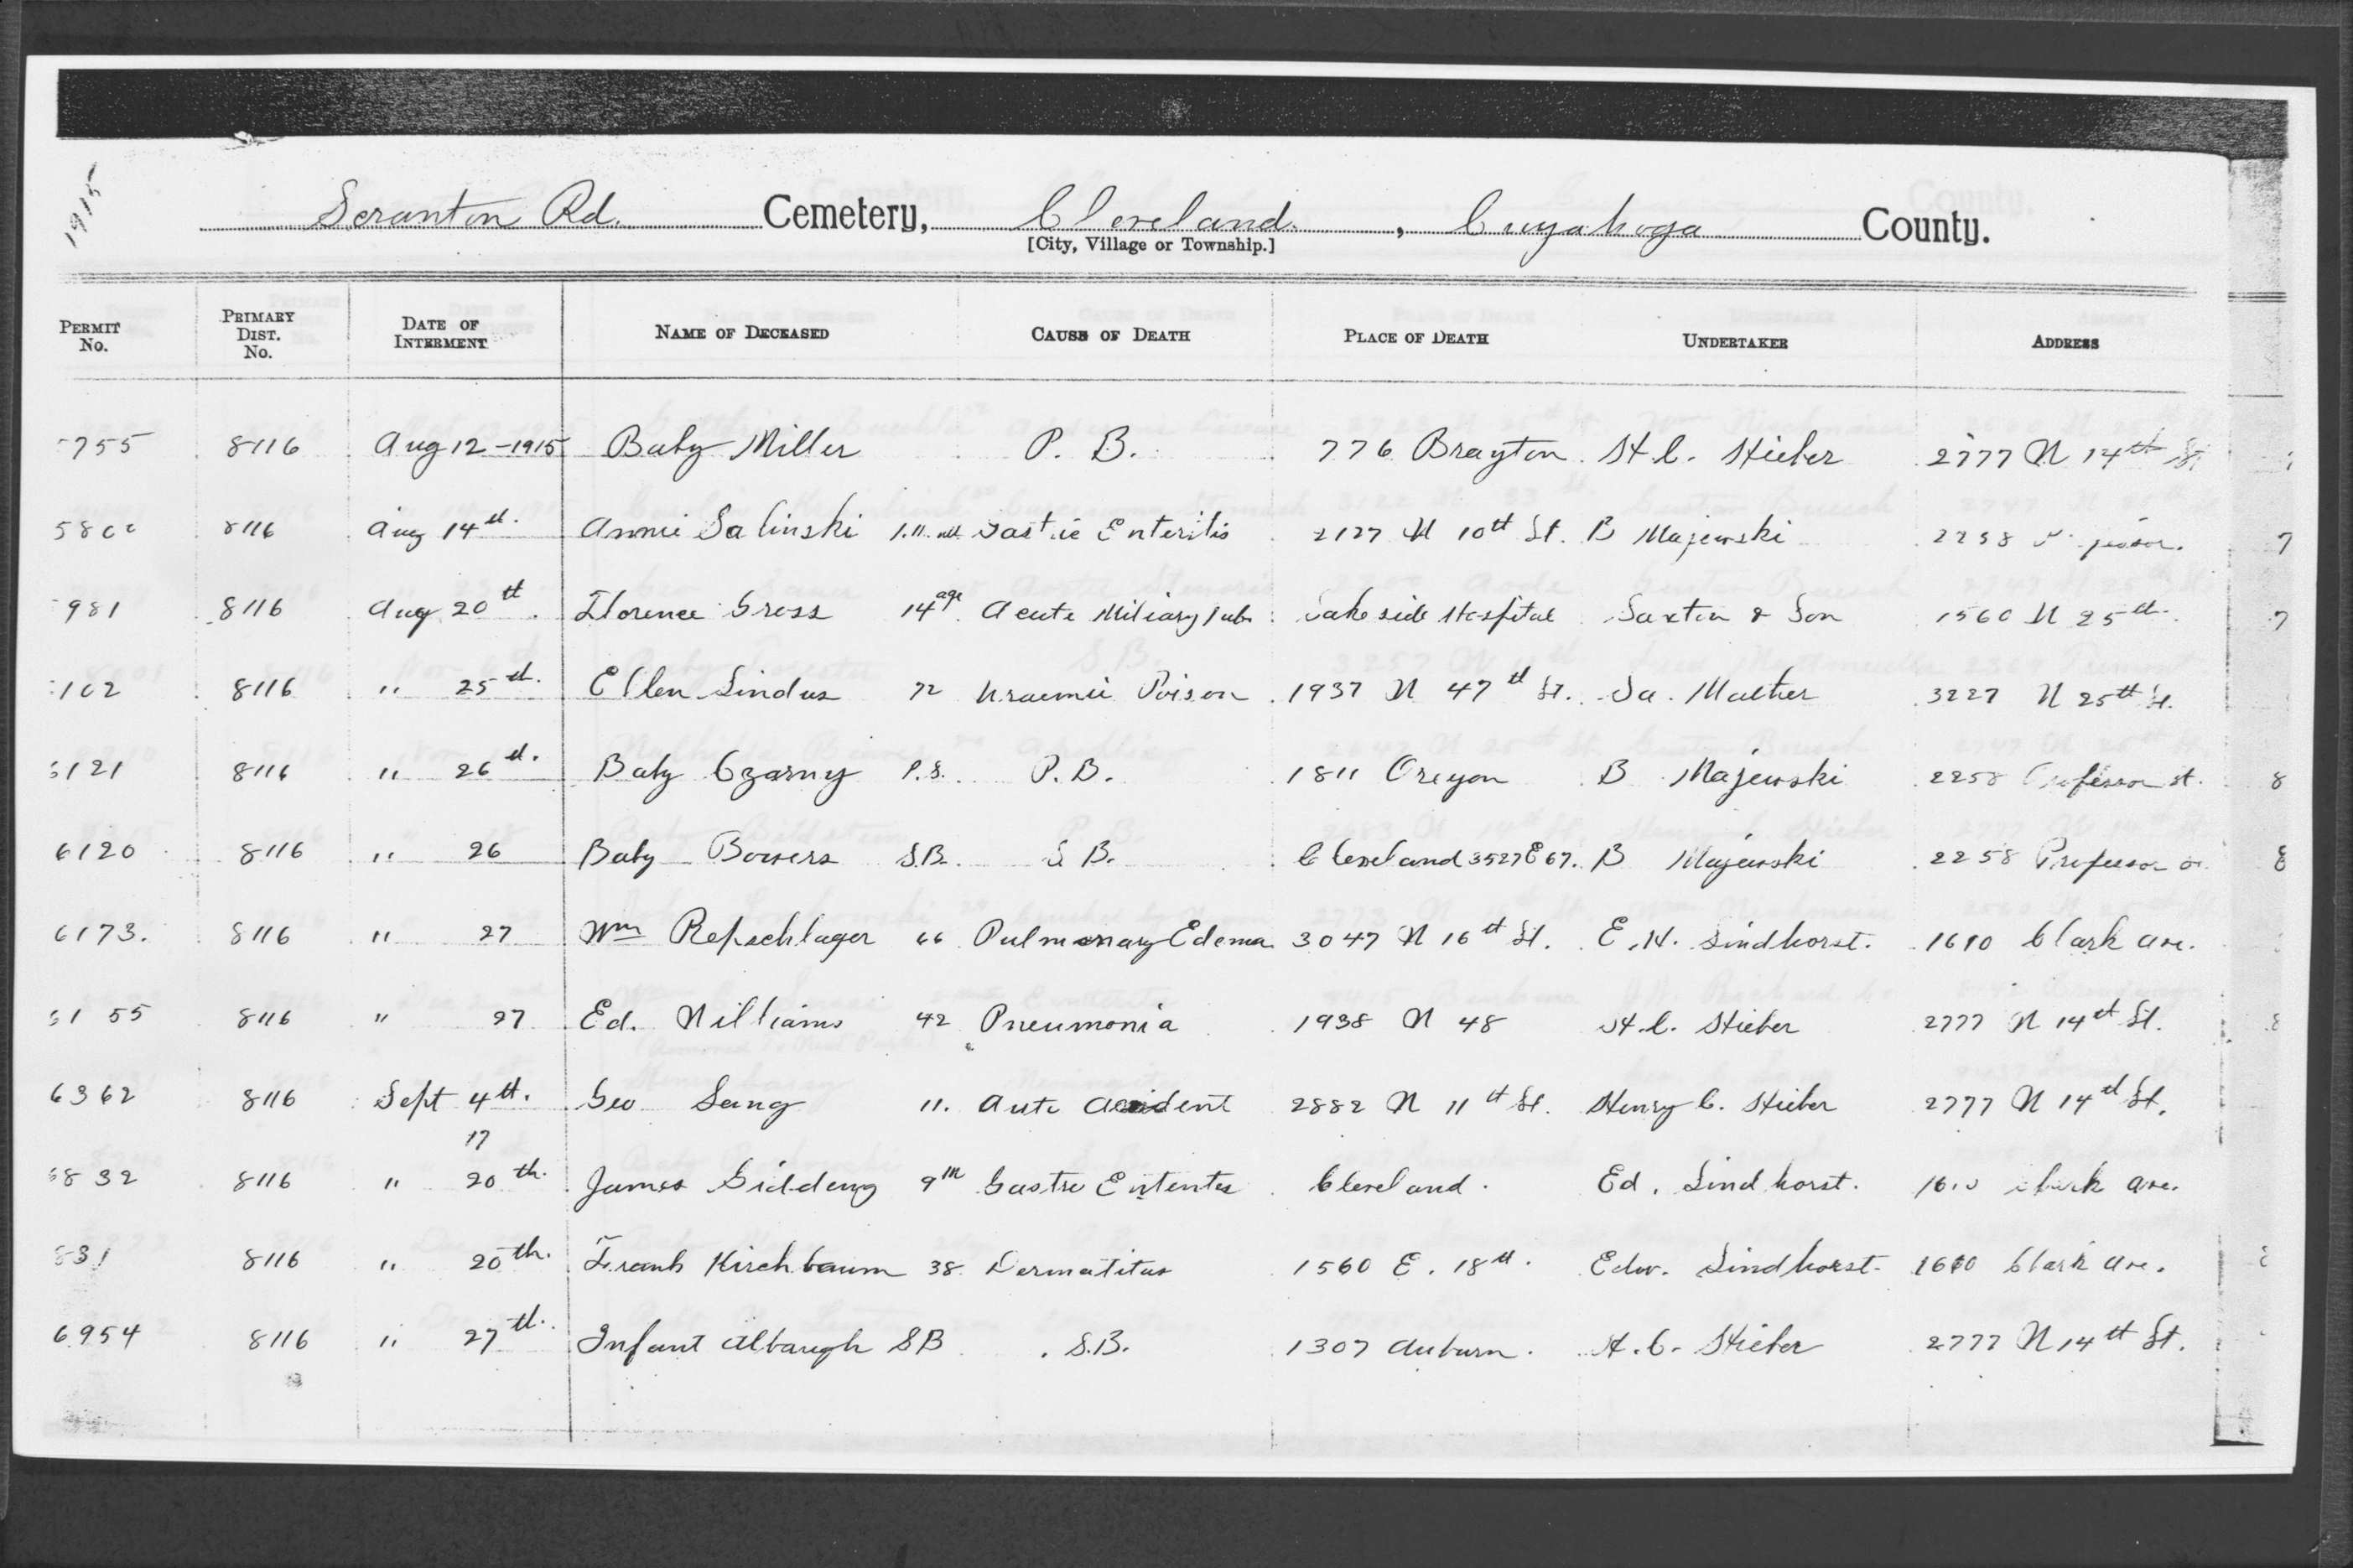 1915
Scranton Rd. Cemetery, Cleveland. , Cuyahoga County.
[City, Village or Township.]
Permit No. Primary Dist. No. Date of Interment Name of Deceased Cause of Death Place of Death Undertaker Address
755 8116 Aug 12-1915 Baby Miller P. B. 776 Brayton H.C. Stieber 2777 W 14th St
580 8116 Aug 14th. Annie Salinski 1.11. Gastric Enteritis 2127 W 10th St. B Majewski 2258
981 8116 Aug 20th. Florence Gross 14 age. Acute Miliary Tub Lakeside Hospital Saxton & Son 1560 W 25th.
102 8116 " 25th. Ellen Lindus 72 Uraemic Poison 1937 W 47th St. Mather 3227 W 25th St.
6121 8116 " 26th. Baby Czarny P.B. 1811 Oregon B Majewski 2258 Professor st.
6120 8116 " 26 Baby Bowers S.B. S B. Cleveland 3527 E 67. B Majewski 2258 Professor
6173. 8116 " 27 Wm Repschlager 66 Pulmonary Edema 3047 W 16th St. E.H. Lindhorst. 1610 Clark ave.
6155 8116 " 27 Ed. Williams 42 Pneumonia 1938 W 48 H.C. Stieber 2777 W 14th St.
6362 8116 Sept 4th. Geo Lang 11. Auto Accident 2882 W 11th St. Henry C. Stieber 2777 W 14th St.
17
6832 8116 " 20th. James Giddeng 9m Gastro Cleveland. Ed. Lindhorst. Clark ave.
831 8116 " 20th. Frank Kirchbaum 38 Dermatitus 1560 E. 18th. Edw. Lindhorst. 1610 Clark ave.
6954 8116 " 27th. Infant Albaugh SB S.B. 1307 Auburn. H.C. Stieber 2777 W 14th St.